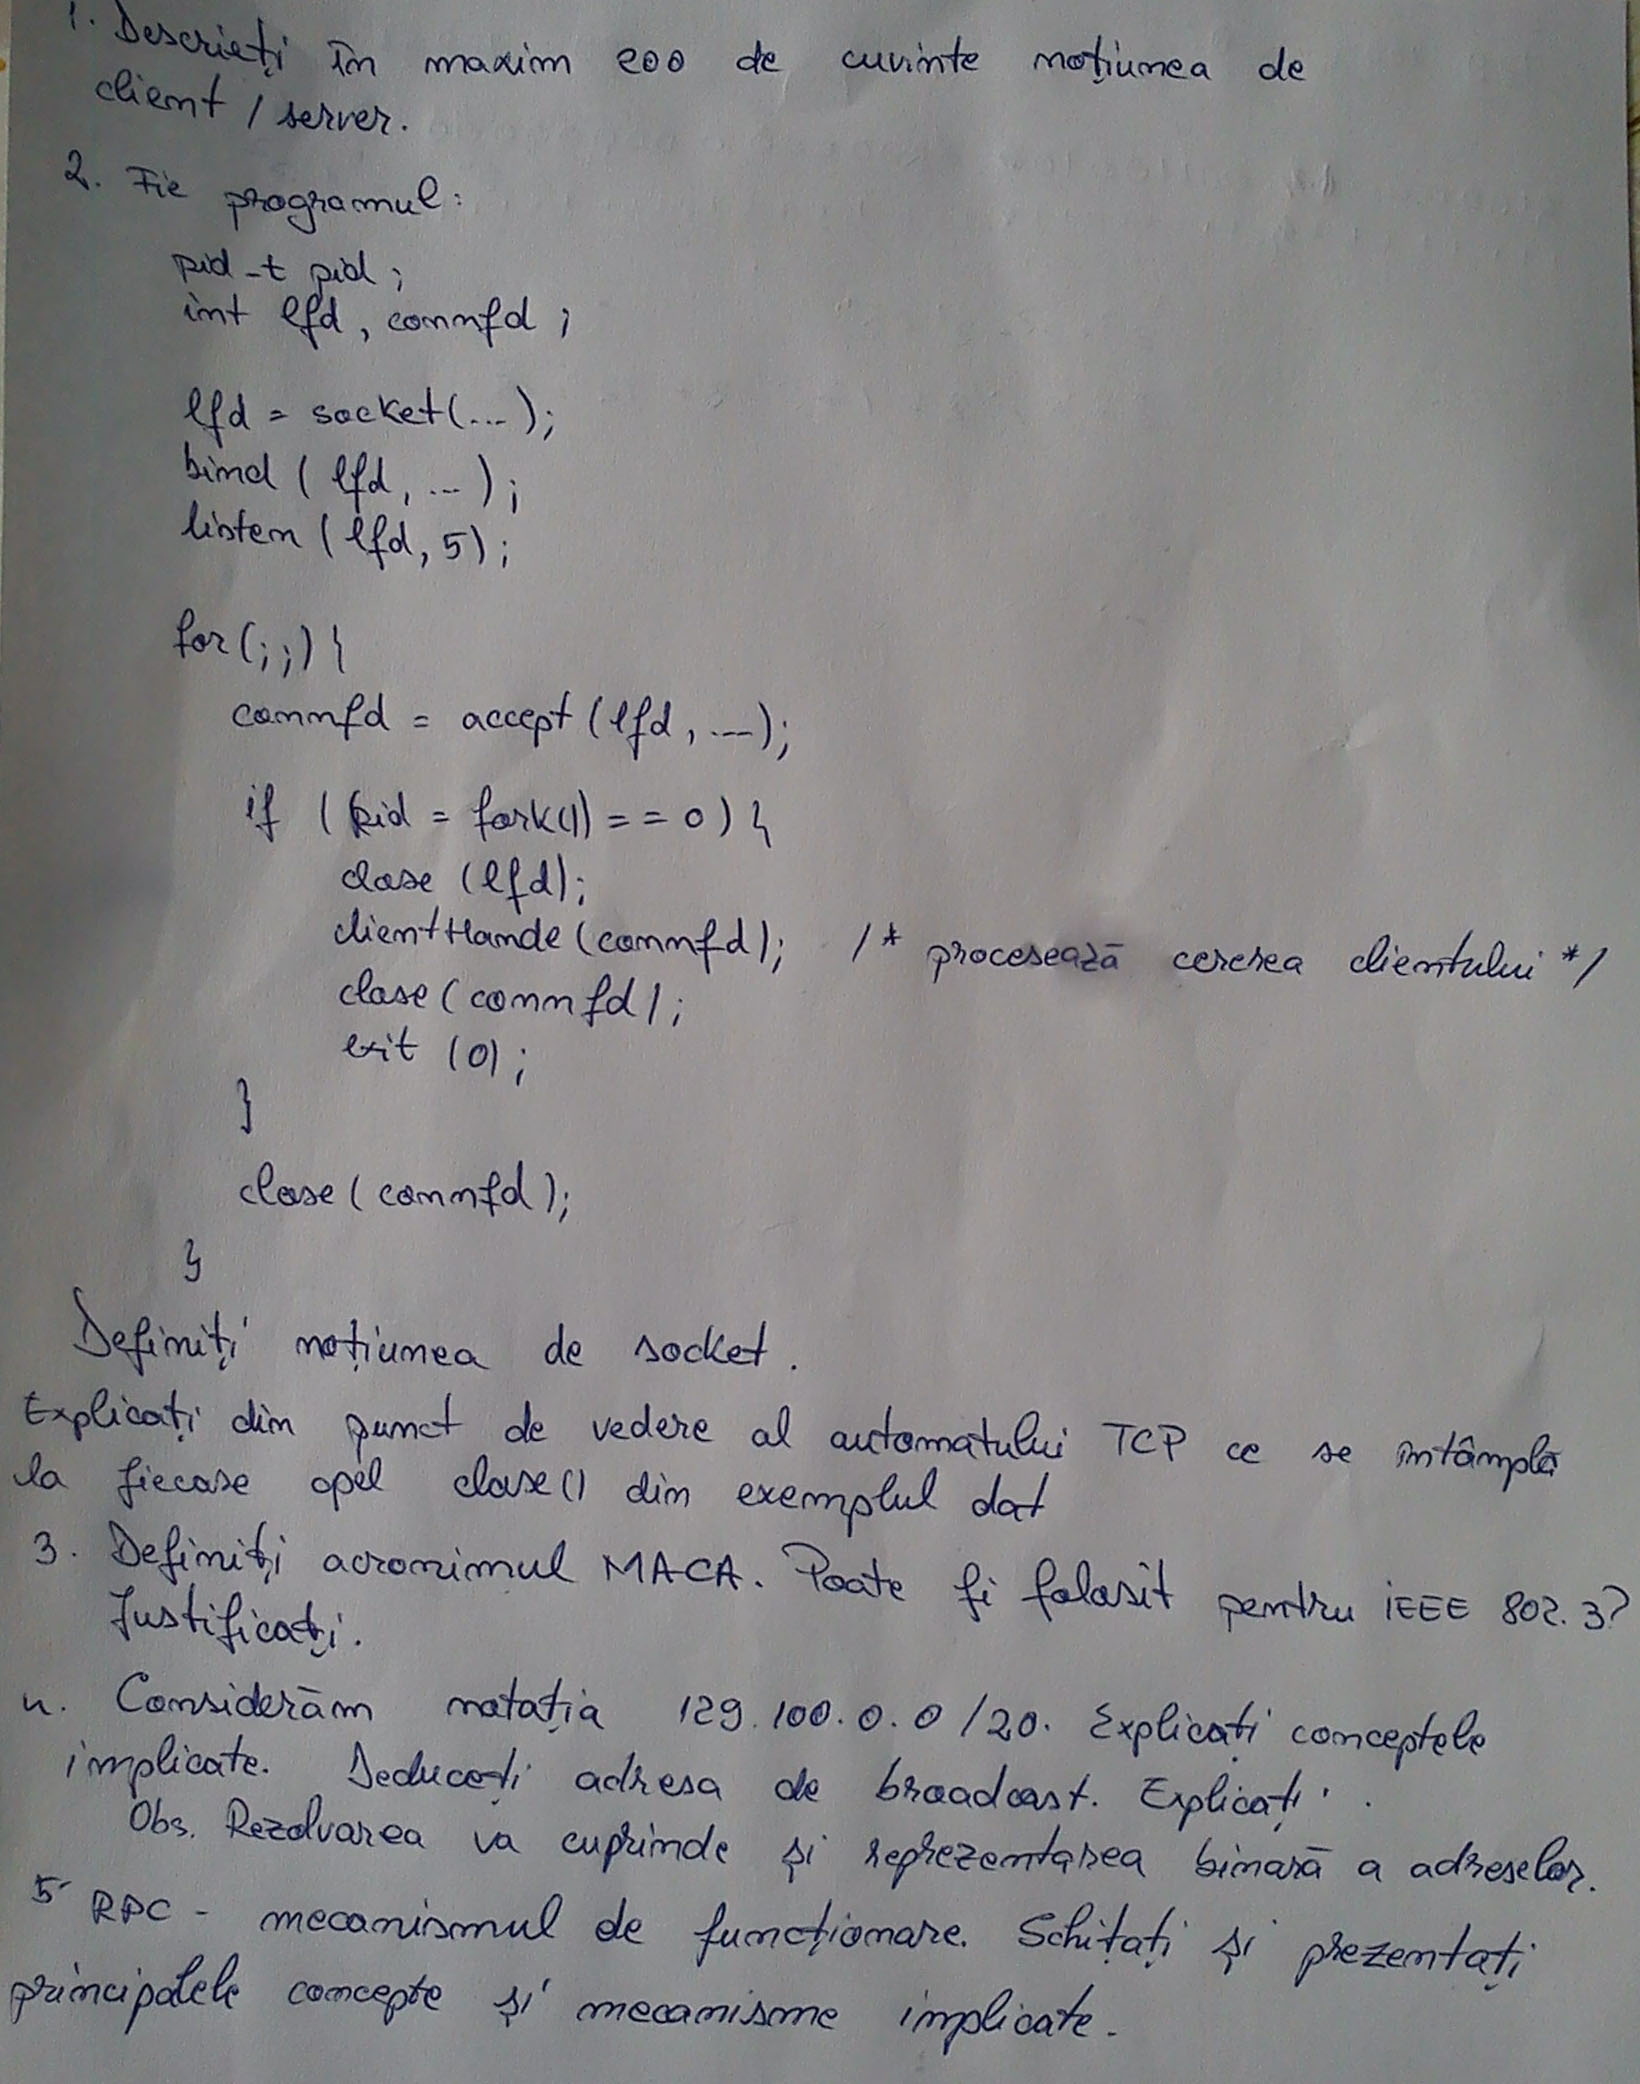 1. Descrieți în maxim 200 de cuvinte noțiunea de
client / server.
2. Fie programul:
pid_t pid;
int lfd, connfd;
lfd = socket(...);
bind (lfd, ...);
listen (lfd, 5);
for(;;) {
connfd = accept (lfd, ...);
if (pid = fork()) == 0) {
close (lfd);
clientHande (connfd); /* procesează cererea clientului */
close (connfd);
exit (0);
}
close (connfd);
}
Definiți noțiunea de socket.
Explicați din punct de vedere al automatului TCP ce se întâmplă
la fiecare apel close() din exemplul dat
3. Definiți acronimul MACA. Poate fi folosit pentru IEEE 802.3?
Justificați.
4. Considerăm notația 129.100.0.0/20. Explicați conceptele
implicate. Deduceți adresa de broadcast. Explicați.
Obs. Rezolvarea va cuprinde și reprezentarea binară a adreselor.
5 RPC - mecanismul de funcționare. Schițați și prezentați
principalele concepte și mecanisme implicate.